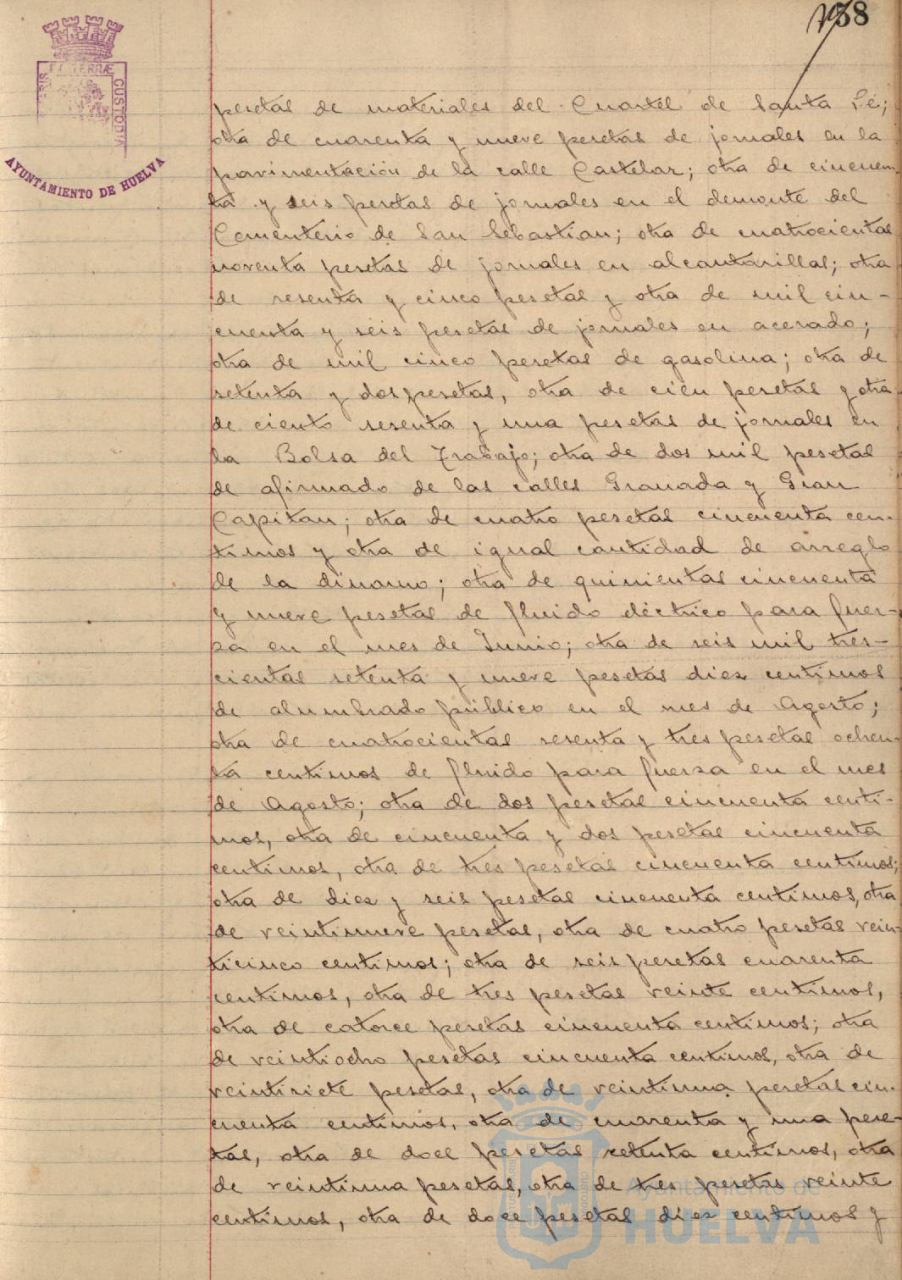 138
PORTUS MARIS ET TERRÆ CUSTODIA
AYUNTAMIENTO DE HUELVA
pesetas de materiales del Cuartel de Santa Fé;
otra de cuarenta y nueve pesetas de jornales en la
pavimentación de la calle Castelar; otra de cincuen-
ta y seis pesetas de jornales en el demonte del
Cementerio de San Sebastian; otra de cuatrocientas
noventa pesetas de jornales en alcantarillas; otra
de sesenta y cinco pesetas y otra de mil cin-
cuenta y seis pesetas de jornales en acerado;
otra de mil cinco pesetas de gasolina; otra de
setenta y dos pesetas, otra de cien pesetas y otra
de ciento sesenta y una pesetas de jornales en
la Bolsa del Trabajo; otra de dos mil pesetas
de afirmado de las calles Granada y Gran
Capitan; otra de cuatro pesetas cincuenta cen-
timos y otra de igual cantidad de arreglo
de la dinamo; otra de quinientas cincuenta
y nueve pesetas de fluido eléctrico para fuer-
za en el mes de Junio; otra de seis mil tres-
cientas setenta y nueve pesetas diez centimos
de alumbrado público en el mes de Agosto;
otra de cuatrocientas sesenta y tres pesetas ochen-
ta centimos de fluido para fuerza en el mes
de Agosto; otra de dos pesetas cincuenta centi-
mos, otra de cincuenta y dos pesetas cincuenta
centimos, otra de tres pesetas cincuenta centimos;
otra de diez y seis pesetas cincuenta centimos, otra
de veintinueve pesetas, otra de cuatro pesetas vein-
ticinco centimos; otra de seis pesetas cuarenta
centimos, otra de tres pesetas veinte centimos,
otra de catorce pesetas cincuenta centimos; otra
de veintiocho pesetas cincuenta centimos, otra de
veintisiete pesetas, otra de veintinna pesetas cin-
cuenta centimos, otra de cuarenta y una pese-
tas, otra de doce pesetas setenta centimos, otra
de veintinna pesetas, otra de tres pesetas veinte
centimos, otra de doce pesetas diez centimos y
Ayuntamiento de
HUELVA